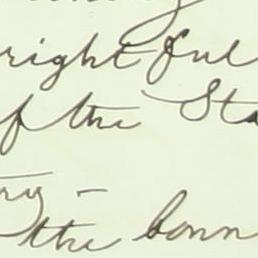 right ful
of the Sta
ry -
the bonn